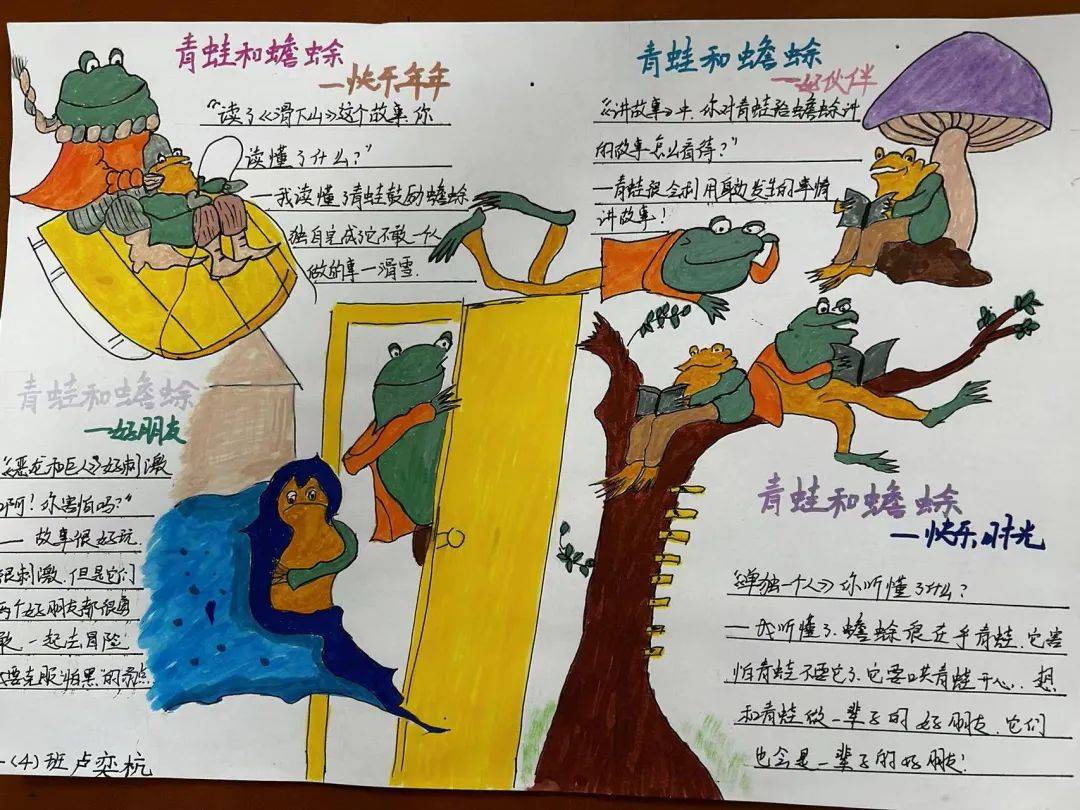 青蛙和蟾蜍
—快乐年年
“读了《滑下山》这个故事,你
读懂了什么?”
—我读懂了青蛙鼓励蟾蜍
独自完成它不敢一个人
做的事—滑雪.
青蛙和蟾蜍
—好伙伴
“《讲故事》中,你对青蛙给蟾蜍讲
的故事怎么看待?”
—青蛙很会利用身边发生的事情
讲故事!
青蛙和蟾蜍
—好朋友
“《恶龙和巨人》好刺激
啊!你害怕吗?”
— 故事很好玩.
很刺激.但是它们
两个好朋友都很勇
敢.一起去冒险!
要克服“怕黑”的
青蛙和蟾蜍
—快乐时光
“《单独一个人》你听懂了什么?
—我听懂了.蟾蜍很在乎青蛙.它害
怕青蛙不要它了.它要哄青蛙开心.想
和青蛙做一辈子的好朋友.它们
也会是一辈子的好朋友!
一(4)班卢奕杭